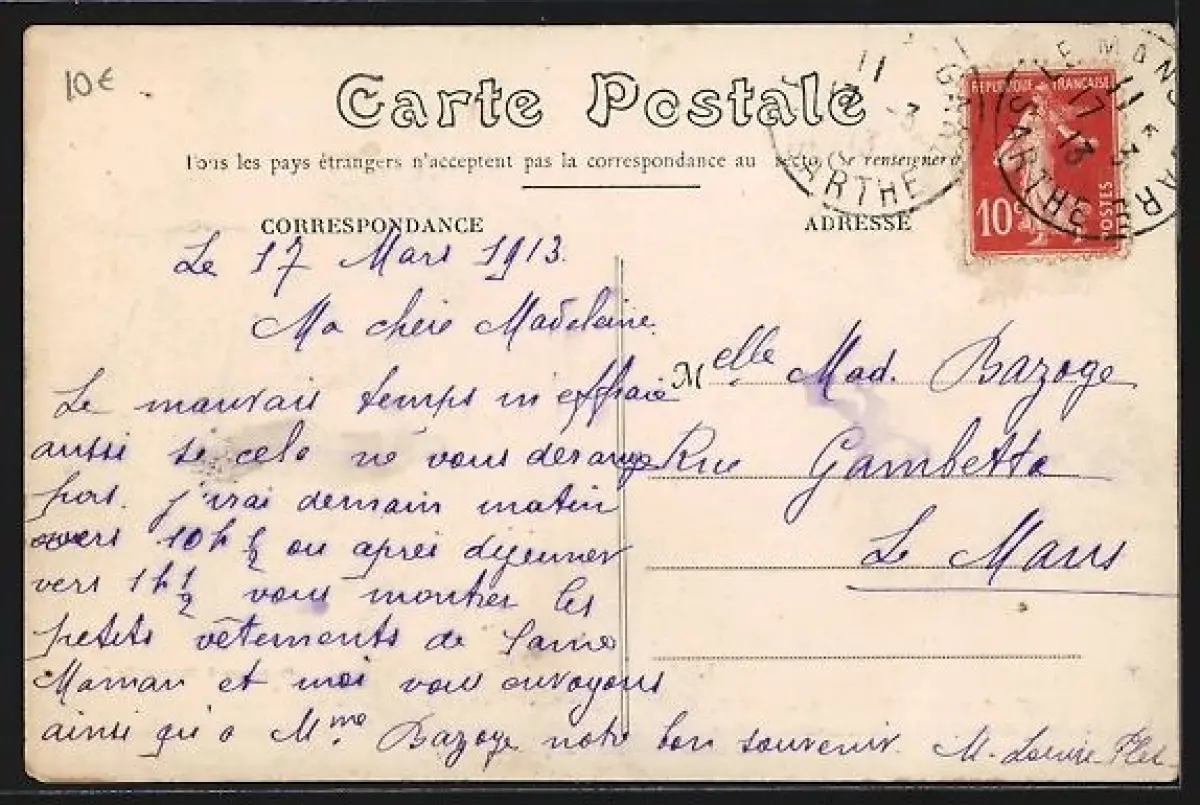 10€
Carte Postale
Tous les pays étrangers n'acceptent pas la correspondance au recto (Se renseigner à
CORRESPONDANCE
Le 17 Mars 1913.
Ma chère Madeleine
Le mauvais temps m'effraie
aussi si cela ne vous dérange
pas. j'irai demain matin
vers 10h ½ ou après déjeuner
vers 1h ½ vous montrer les
petits vêtements de laine
Maman et moi vous envoyons
ainsi qu'à Mme Bazoge notre bon souvenir. M. Louise
ADRESSE
Melle Mad. Bazoge
Rue Gambetta
Le Mans
REPUBLIQUE FRANÇAISE
10c
POSTES
LE MANS GARE
SARTHE
17 -3
13
11
GARE
-3
13
SARTHE